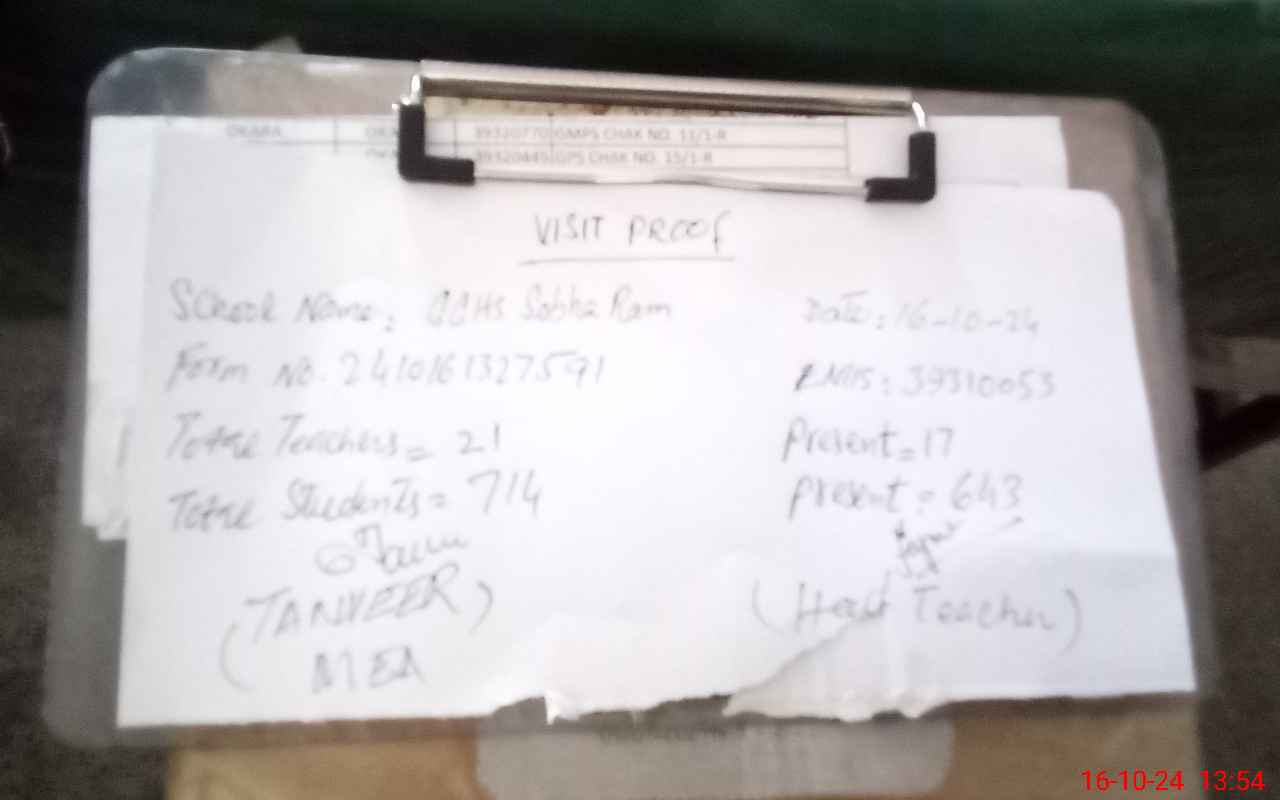 OKARA OKA 39320770 GMPS CHAK NO. 11/1-R
39320445 GPS CHAK NO. 15/1-R
VISIT PROOF
School Name: GGHS Sobha Ram Date: 16-10-24
Form No. 2410161327591 EMIS: 39310053
Total Teachers = 21 Present = 17
Total Students = 714 Present = 643
(TANVEER) (Head Teacher)
MEA
16-10-24 13:54